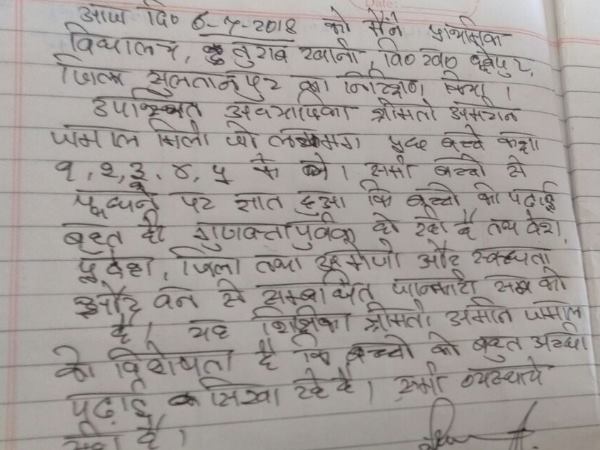 आज दि० 6-7-2018 को मैंने प्राथमिक
विद्यालय, तुराब खानी, वि० ख० कूरेभार,
जिला सुलतानपुर का निरिक्षण किया।
उपस्थित अध्यापिका श्रीमती अमरीन
जमाल मिली जो लगभग बच्चे कक्षा
१, २, ३, ४, ५ के थे। सभी बच्चो से
पूछने पर ज्ञात हुआ कि बच्चो की पढ़ाई
बहुत ही गुणवत्तापूर्वक हो रही है तथा देश,
प्रदेश, जिला तथा और स्वच्छता
और वन से सम्बन्धित जानकारी सब को
है। यह शिक्षिका श्रीमती जमाल
की विशेषता है कि बच्चो को बहुत अच्छी
पढ़ाई सिखा रहे है। सभी व्यवस्थाये
सही है।